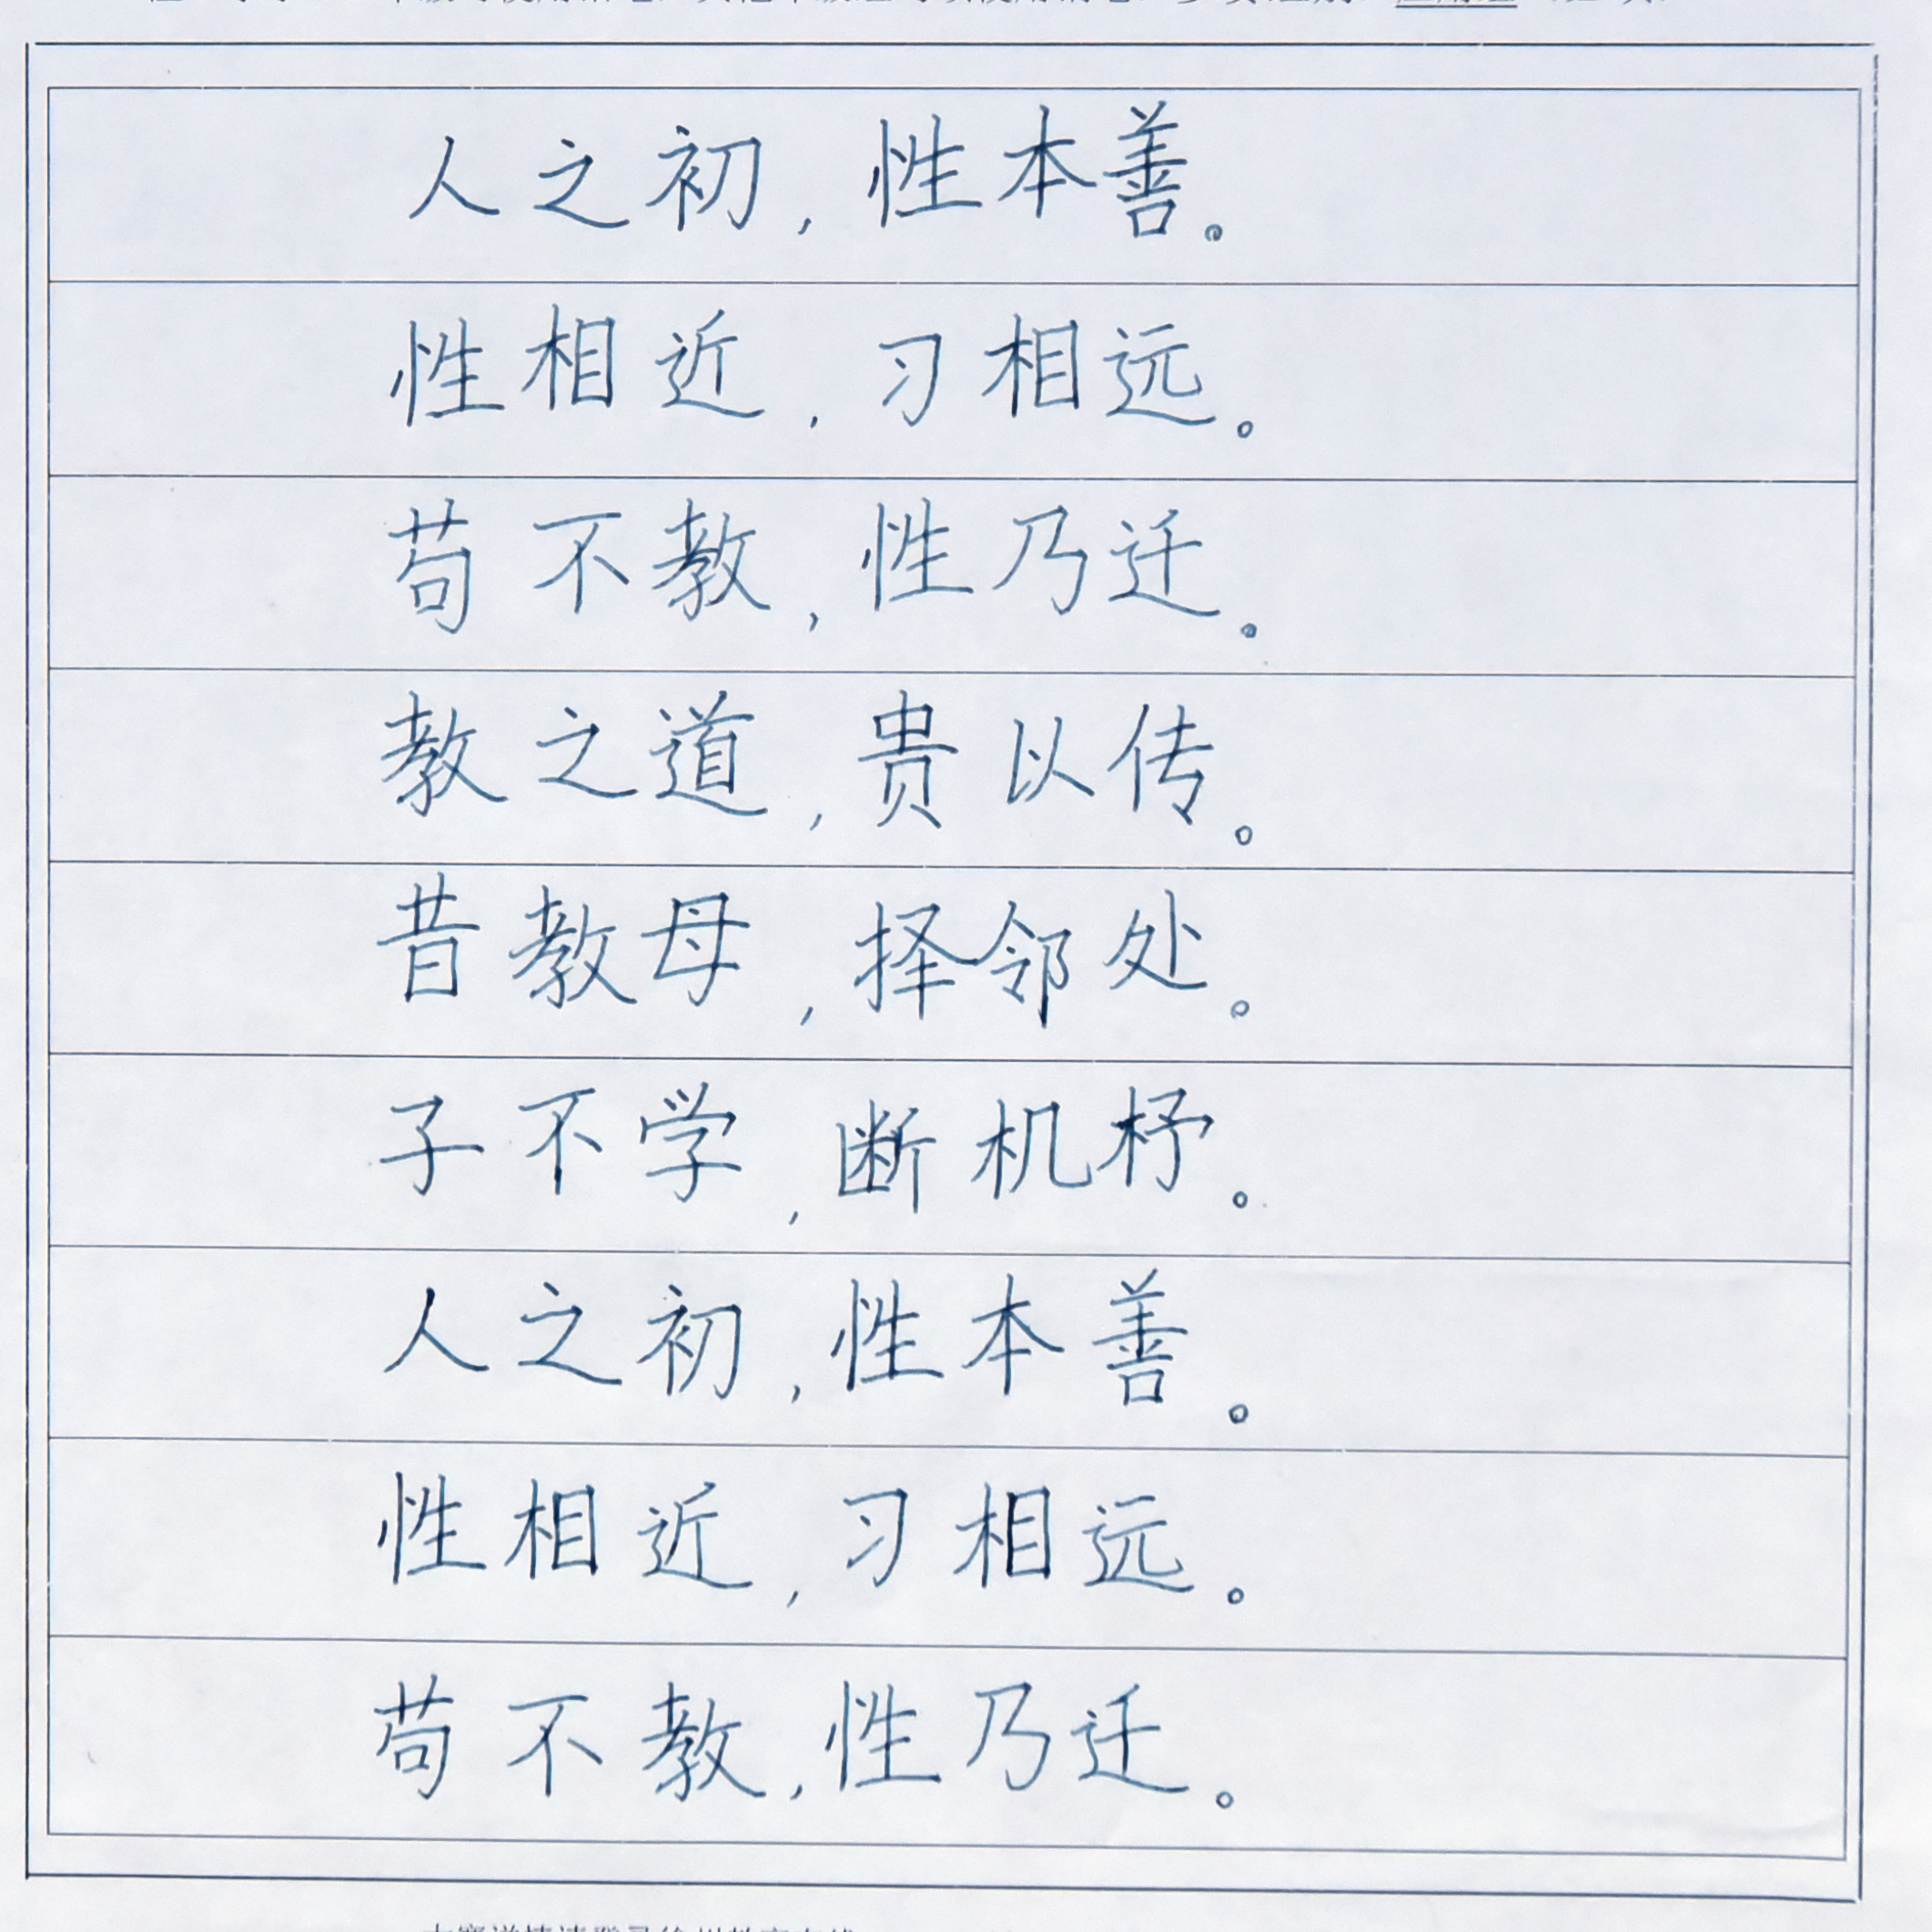 人之初，性本善。
性相近，习相远。
苟不教，性乃迁。
教之道，贵以传。
昔教母，择邻处。
子不学，断机杼。
人之初，性本善。
性相近，习相远。
苟不教，性乃迁。